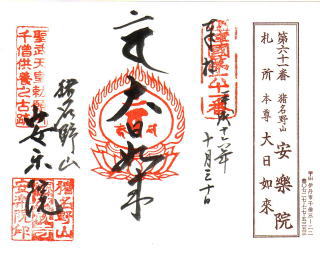 第六十一番
猪名野山
安樂院
札所
本尊
大日如來
奉拝
平成十六年
十月三十日
大日如来
猪名野山
安楽院
聖武天皇勅願所
千僧供養之古跡
猪名野山
安楽院印